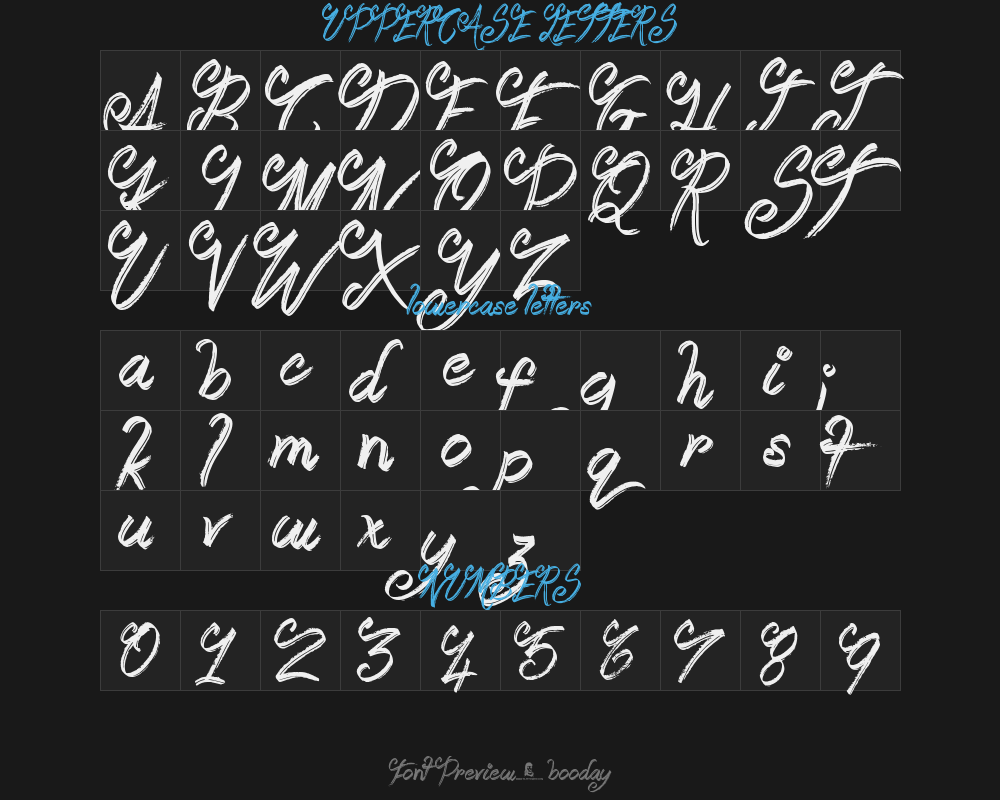 UPPERCASE LETTERS
A B C D E F G H I J
K L M N O P Q R S T
U V W X Y Z
lowercase letters
a b c d e f g h i j
k l m n o p q r s t
u v w x y z
NUMBERS
0 1 2 3 4 5 6 7 8 9
Font Preview booday